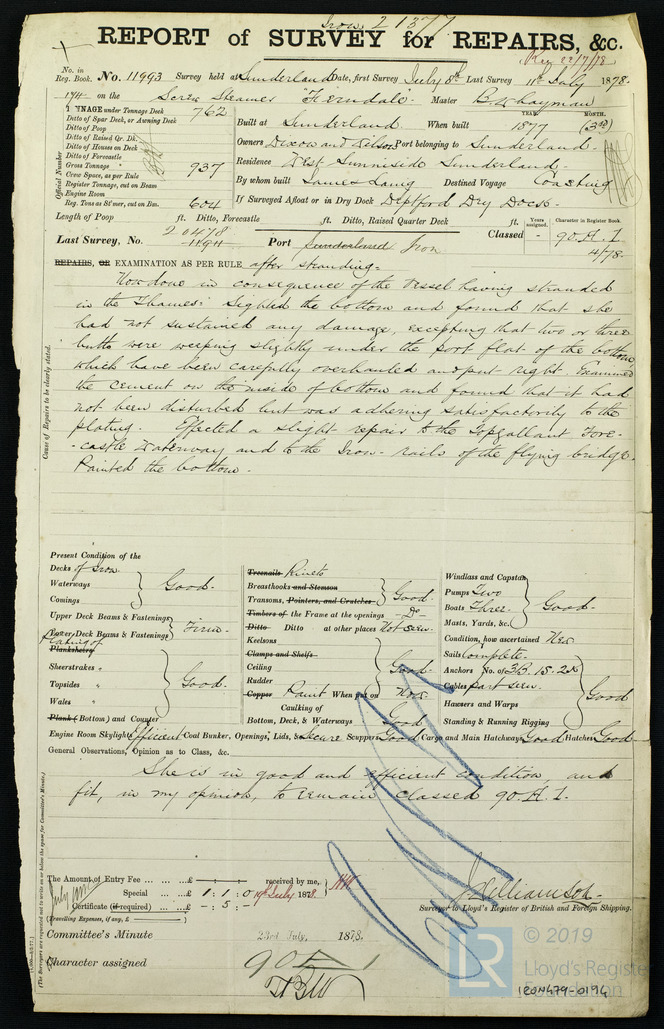 Iron 21377
REPORT of SURVEY for REPAIRS, &c.
Rec 22/7/78
No. in Reg. Book. No. 11993 Survey held at Sunderland Date, first Survey July 8th Last Survey 11th July 1878.
174 on the Screw Steamer "Ferndale" Master B. Whayman
TONNAGE under Tonnage Deck 762
Ditto of Spar Deck, or Awning Deck
Ditto of Poop
Ditto of Raised Qr. Dk.
Ditto of Houses on Deck
Ditto of Forecastle
Gross Tonnage 937
Crew Space, as per Rule
Register Tonnage, cut on Beam
Engine Room
Reg. Tons as St'mer, cut on Bm. 604
Official Number
YEAR. MONTH.
Built at Sunderland When built 1877 (3rd)
Owners Dixon and Wilson Port belonging to Sunderland.
Residence West Sunniside Sunderland.
By whom built James Laing Destined Voyage Coasting
If Surveyed Afloat or in Dry Dock Deptford Dry Dock.
Length of Poop ft. Ditto, Forecastle ft. Ditto, Raised Quarter Deck ft.
Years assigned. Character in Register Book.
Last Survey, No. 20478 Port Sunderland Iron Classed - 90.A.1. 4/78.
REPAIRS, OR EXAMINATION AS PER RULE after stranding.
Cause of Repairs to be clearly stated.
Now done in consequence of the Vessel having stranded
in the Thames: Sighted the bottom and found that she
had not sustained any damage, excepting that two or three
butts were weeping slightly under the port flat of the bottom
which have been carefully overhauled and put right. Examined
the cement on the inside of bottom and found that it had
not been disturbed but was adhering satisfactorily to the
plating. Effected a slight repair to the Topgallant Fore-
-castle Waterway and to the Iron-rails of the flying bridge.
Painted the bottom.
Present Condition of the
Decks of Iron
Waterways Good.
Comings
Upper Deck Beams & Fastenings
Lower Deck Beams & Fastenings Firm.
Plating of
Planksheers
Sheerstrakes "
Topsides " Good.
Wales "
Plank (Bottom) and Counter
Treenails Rivets
Breasthooks and Stemson
Transoms, Pointers, and Crutches Good
Timbers of the Frame at the openings - Do -
Ditto Ditto at other places Not seen.
Keelsons
Clamps and Shelfs
Ceiling Good
Rudder
Copper Paint When put on Now
Caulking of
Bottom, Deck, & Waterways Good
Windlass and Capstan
Pumps Two
Boats Three. Good.
Masts, Yards, &c.
Condition, how ascertained New
Sails Complete.
Anchors No. of 3B. 1S. 2K
Cables part seen. Good
Hawsers and Warps
Standing & Running Rigging
Engine Room Skylights Efficient Coal Bunker, Openings, Lids, & Secure Scuppers Good Cargo and Main Hatchways Good Hatches Good
General Observations, Opinion as to Class, &c.
She is in good and efficient condition, and
fit, in my opinion, to remain classed 90.A.1.
The Amount of Entry Fee ... ... £ : : received by me,
Special ... ... £ 1 : 1 : 0 19th July 1878.
Certificate (if required) ... - : 5 : -
(Travelling Expenses, if any, £ )
J Williamson.
Surveyor to Lloyd's Register of British and Foreign Shipping.
Committee's Minute 23rd July. 1878.
Character assigned 90 A 1
(The Surveyors are requested not to write on or below the space for Committee's Minute.)
LR
© 2019
Lloyd's Register
Foundation
[20N479-0194